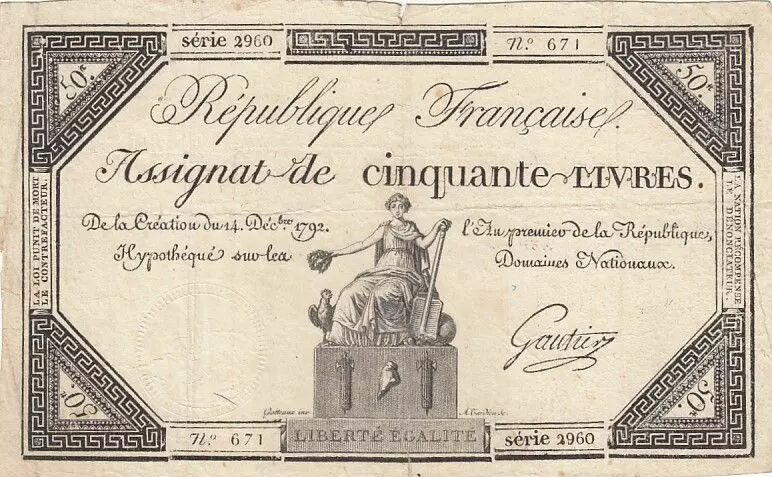 série 2960
N.º 671
50.ᵗ
50.ᵗ
République Française.
Assignat de cinquante LIVRES.
De la Création du 14. Déc.ᵇʳᵉ 1792.
l'An premier de la République,
Hypothéqué sur les
Domaines Nationaux.
LA LOI PUNIT DE MORT
LE CONTREFACTEUR.
LA NATION RÉCOMPENSE
LE DÉNONCIATEUR.
Gautier
Gatteaux inv.
A. Tardieu Sc.
50.ᵗ
50.ᵗ
N.º 671
LIBERTÉ EGALITÉ
série 2960